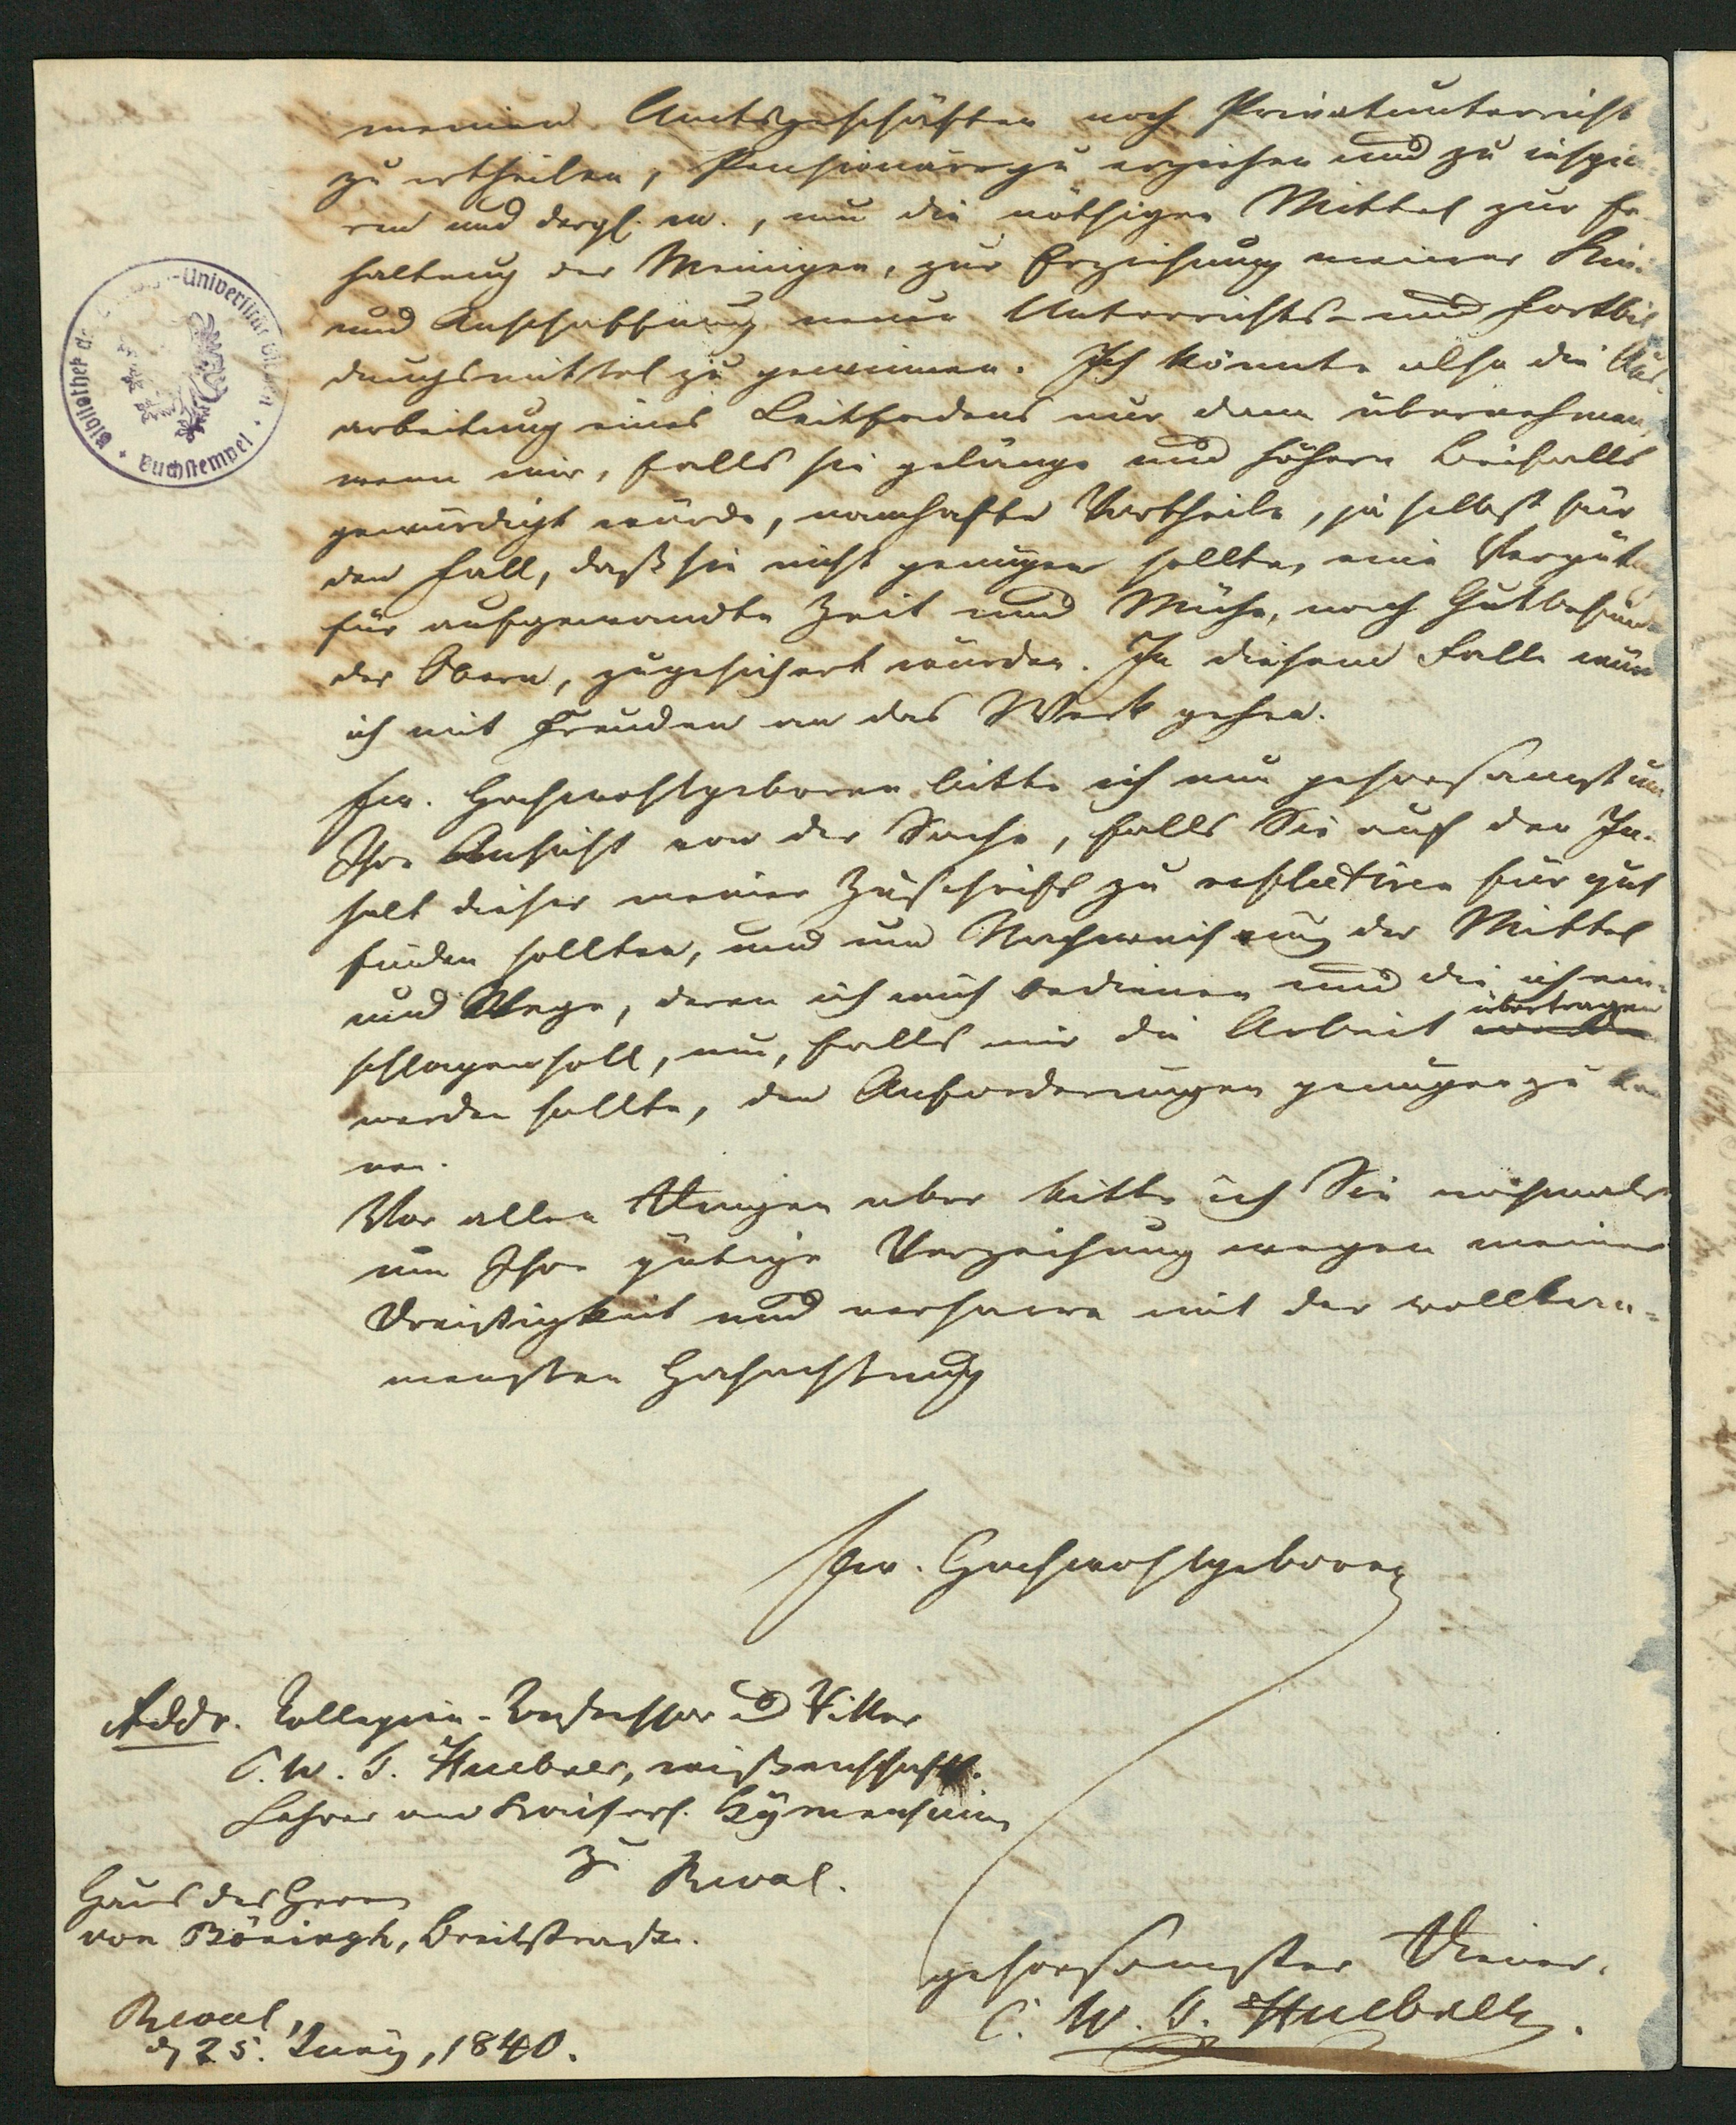 meinen Amtsgeschäften noch Privatunterricht
zu ertheilen, Pensionäre zu erziehen und zu inspici-
ren und dergl. m., um die nöthigen Mittel zur Er-
haltung der Meinigen, zur Erziehung meiner Kin-
und Anschaffung neuer Unterrichts- und Fortbil-
dungsmittel zu gewinnen. Ich könnte also die Aus-
arbeitung eines Leitfadens nur dann übernehmen,
wenn mir, falls sie gelänge und höhern Beifalls
gewürdigt würde, namhafte Vortheile, ja selbst für
den Fall, daß sie nicht genügen sollte, eine Vergüt
für aufgewandte Zeit und Mühe, nach Gutbefund
der Obern, zugesichert würden. In diesem Falle wür
ich mit Freuden an das Werk gehen.
Ew. Hochwohlgeboren bitte ich nun gehorsamst um
Ihre Ansicht von der Sache, falls Sie auf den In-
halt dieser meiner Zuschrift zu reflectiren für gut
finden sollten, und um Nachweisung der Mittel
und Wege, deren ich mich bedienen und die ich ein-
übertragen
schlagen soll, um, falls mir die Arbeit werden
werden sollte, den Anforderungen genügen zu kön
nen.
Vor allen Dingen aber bitte ich Sie nochmals
um Ihre gütige Verzeihung wegen meiner
Dreistigkeit und verharre mit der vollkom-
mensten Hochachtung
Ew. Hochwohlgeboren
Addr. Collegien-Assessor u Ritter
C. W. T. Huebner, wißenschaftl.
Lehrer am Kaiserl. Gymnasium
zu Reval.
Haus des Herrn
von Böningh, Breitstraße.
gehorsamster Diener.
C. W. T. Huebner.
Reval,
d 25. Juny, 1840.
Bibliothek d -Universität
Buchstempel